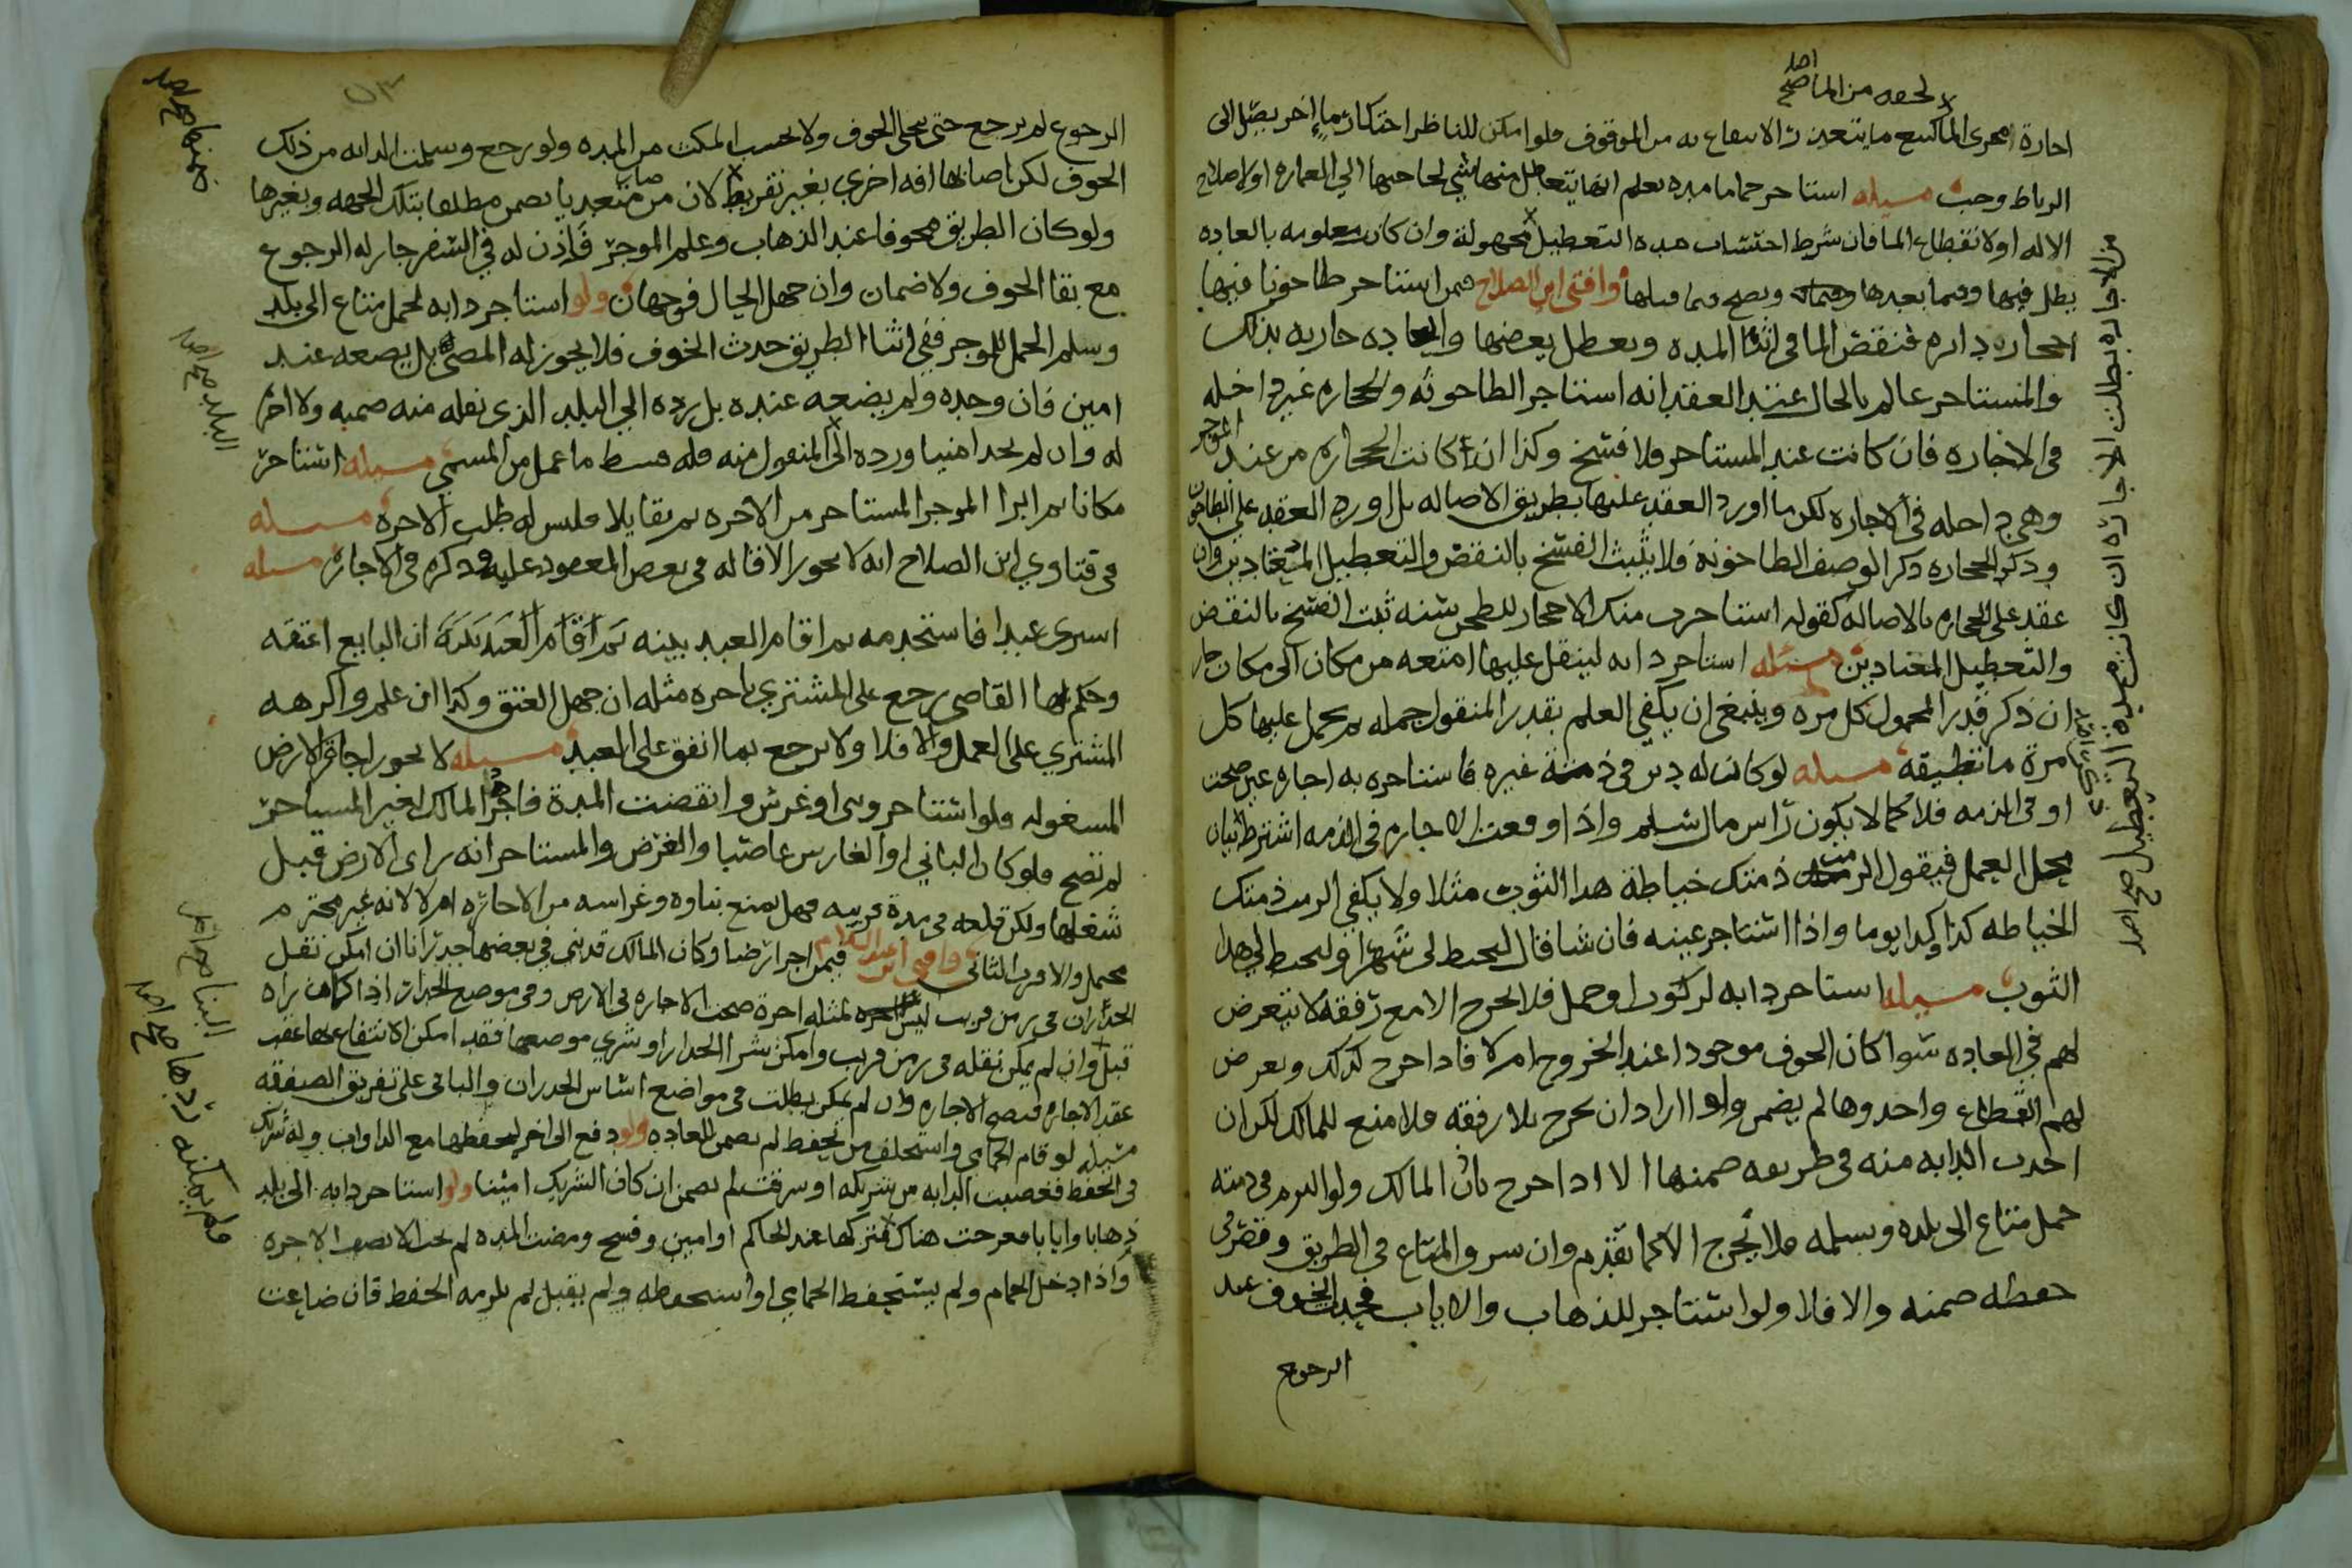 لحصه من الماصح
اصد
اجارة امحرى الماكسع مايتعين زالاسفاع به من الموقوف فلوامكن للناظر احتكار ماء اخر يصل الى
الرباط وجب مسىله استاحر حماما مده يعلم انها يتعاطل منها شي لحاحتها الي العماره اولاصلاح
الاله اولانقطاع الما فان شرط احتساب مده التعطيل مجهولة وان كانت معلومه بالعاده
بطل فيها وفيما بعدها وصح فيما قبلها وافتى ابن الصلاح فيمن استاحر طاحونا فيها
احجاره دايره فنقض الما في اثنا المده وتعطل بعضها والعاده جاريه بذلك
والمستاجر عالم بالحال عند العقد انه استاجر الطاحونه والحجاره غير داخله
في الاجاره فان كانت عند المستاجر فلا فسخ وكذا ان كانت الحجاره من عند الموجر
وهي داخله في الاجاره لكن ما اورد العقد عليها بطريق الاصاله بل اورد العقد على الطاحون
وذكر الحجاره ذكر الوصف الطاحونه فلا يثبت الفسخ بالنقض والتعطيل المعتادين وان
عقد على الحجاره بالاصاله كقوله استاجرت منك الاحجار للطحن سنه ثبت الفسخ بالنقض
والتعطيل المعتادين مسئله استاجر دابه لينقل عليها امتعه من مكان الى مكان جاز
ان ذكر قدر المحمول كل مره وينبغي ان يكفي العلم بقدر المنقول جمله ثم يحمل عليها كل
مرة ما تطيقه مسىله لوكان له دين في ذمة غيره فاستاجره به اجاره عين صحت
او في الذمه فلا كما لا يكون راس مال سلم واذا وقعت الاجاره في الذمه اشترط بيان
محل العمل فيقول الزمت ذمتك خياطة هذا الثوب مثلا ولا يكفي الزمت ذمتك
الخياطه كذا وكذا يوما واذا استاجر عينه فان شا قال لتخيط لي شهرا او لتخيط لي هذا
الثوب مسىله استاجر دابه لركوب او حمل فلا يخرج الا مع رفقة لا يتعرض
لهم في العاده سوا كان الخوف موجودا عند الخروج ام لا فاذا خرج كذلك وتعرض
لهم القطاع واخذوها لم يضمن ولو اراد ان يخرج بلا رفقه فلا منع للمالك لكن ان
اخذت الدابه منه في طريقه ضمنها الا اذا خرج باذن المالك ولو التزم في ذمته
حمل متاع الى بلده وتسلمه فلا يخرج الا كما تقدم وان سرق المتاع في الطريق وقصر في
حفظه ضمنه والا فلا ولو استاجر للذهاب والاياب فحدث الخوف عند
الرجوع
من الاجاره بطلت الاجازه ان كانت مدة التعطيل صح اصد
الرجوع لم يرجع حتى ينجلي الخوف ولا يحسب المكث من المده ولو رجع وسلمت الدابه من ذلك
الخوف لكن اصابها افه اخرى بغير تفريط لان من صار متعديا يضمن مطلقا بتلك الجهه وبغيرها
ولو كان الطريق مخوفا عند الذهاب وعلم الموجر فاذن له في السفر جاز له الرجوع
مع بقا الخوف ولا ضمان وان جهل الحال فوجهان ولو استاجر دابه لحمل متاع الى بلد
وسلم الحمل للموجر ففي اثنا الطريق حدث الخوف فلا يجوز له المضي بل يضعه عند
امين فان وجده ولم يضعه عنده بل رده الي البلد الذي نقله منه ضمنه ولا اجره
له وان لم يجد امينا ورده الى المنقول منه فله قسط ما عمل من المسمى مسىله استاجر
مكانا ثم ابرا الموجر المستاجر من الاجره ثم تقايلا فليس له طلب الاجره مسىله
في فتاوي ابن الصلاح انه لا يجوز الاقاله في بعض المعقود عليه وذكره في الاجازه مسىله
اشترى عبدا فاستخدمه ثم اقام العبد بينه ان البايع اعتقه
وحكم بها القاضي رجع على المشتري باجره مثله ان جهل العتق وكذا ان علم واكرهه
المشتري على العمل والا فلا ولا يرجع بما انفق على العبد مسىله لا يجوز اجارة الارض
المشغوله فلو استاجر وبنى او غرس وانقضت المدة فاجرها المالك لغير المستاجر
لم تصح فلو كان الباني او الغارس غاصبا والغرض والمستاجر انه راى الارض قبل
شغلها ولكن قلعه في مدة قريبه فهل يمنع بناوه وغراسه من الاجازه ام لا لانه غير محترم
محتمل والاقرب الثاني وافتى ابن عبد السلام فيمن اجر ارضا وكان المالك قد بنى في بعضها جدرانا ان امكن نقل
الجدران في زمن قريب ليس لمثله اجرة صحت الاجاره في الارض وفي موضع الجدار اذا كان راه
قبل وان لم يمكن نقله في زمن قريب وامكن شرا الجدار او شري موضعها فقد امكن الانتفاع بها عقب
عقد الاجاره فتصح الاجاره وان لم يمكن بطلت في مواضع اساس الجدران والباقي على تفريق الصفقه
مسىله لو قام الحمامي واستخلف من يحفظ لم يضمن للعاده ولو دفع الى اخر ليحفظها مع الدواب وله شريك
في الحفظ فغصبت الدابه من شريكه او سرقت لم يضمن ان كان الشريك امينا ولو استاجر دابه الى بلد
ذهابا وايابا فعرجت هناك فتركها عند الحاكم او امين وفسخ ومضت المده لم يجب الا نصف الاجره
واذا دخل الحمام ولم يستحفظ الحمامي او استحفظه ولم يقبل لم يلزمه الحفظ فان ضاعت
ضمنها صح اصد
البلد صح اصد
البنا صح اصل
ولم يمكنه ردها صح اصد